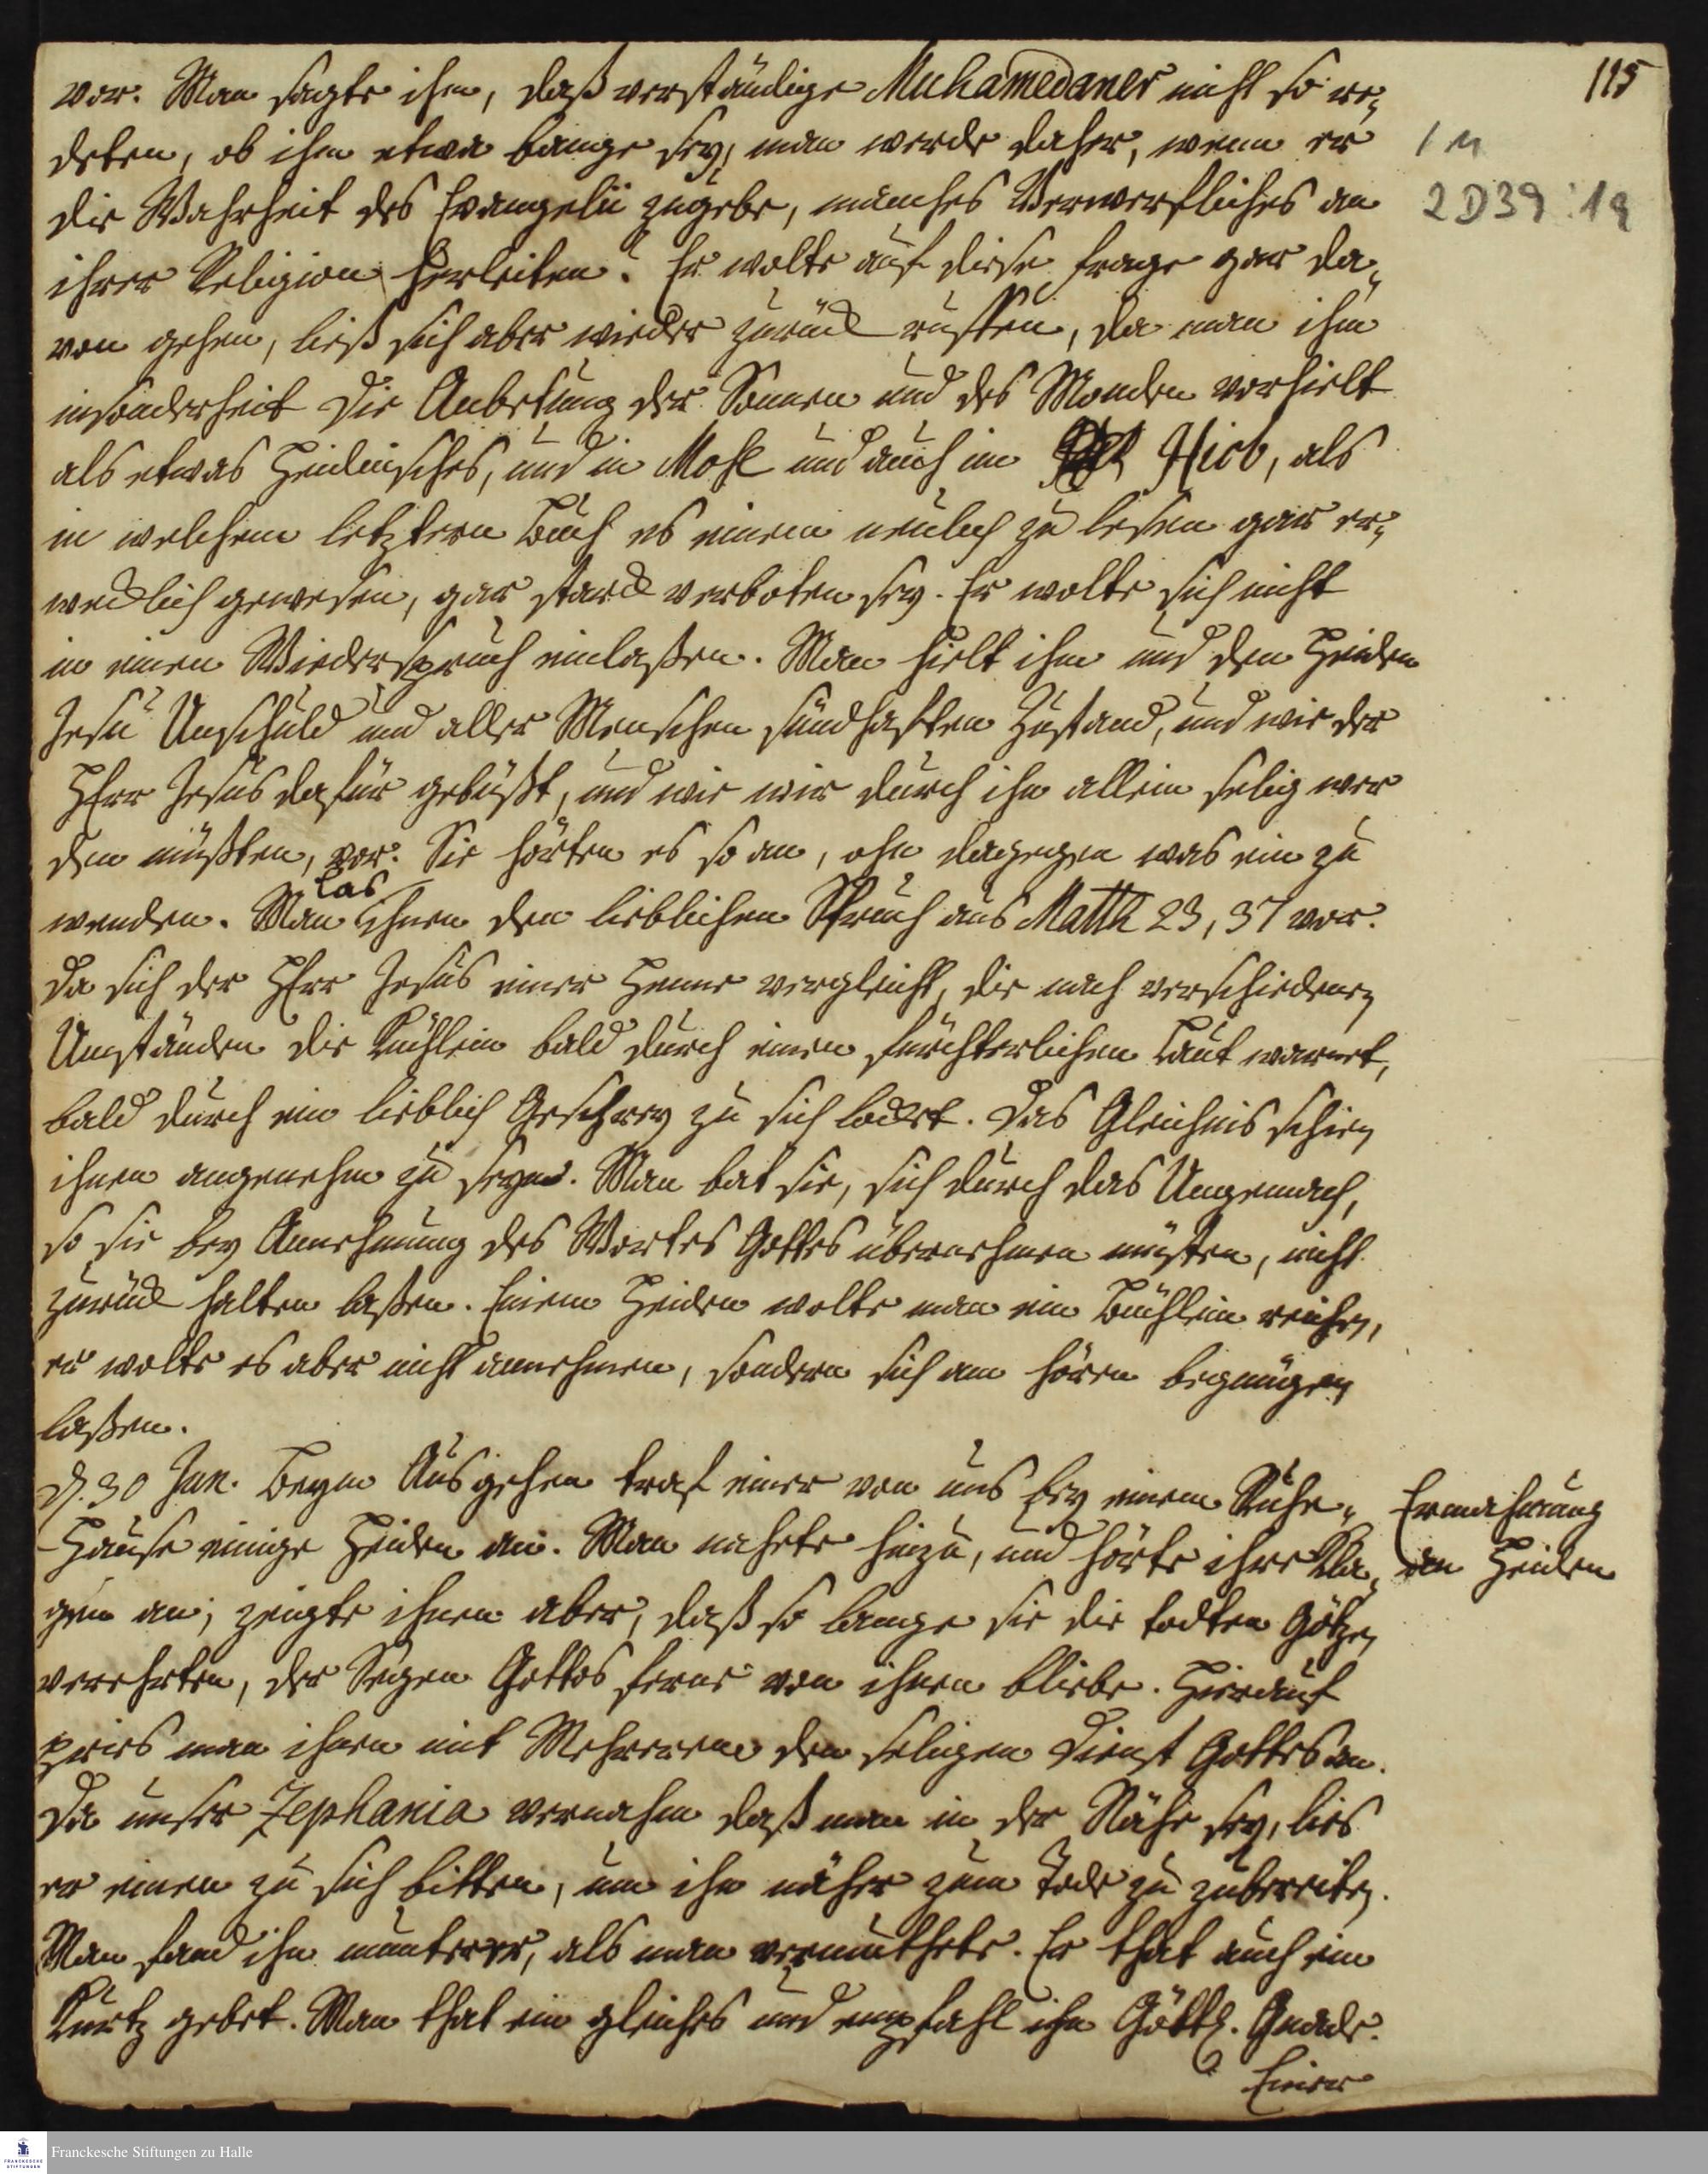 115
1 M
2 D 39 : 19
vor. Man sagte ihm, daß verständige Muhamedaner nicht so re„
deten, ob ihm etwa bange sey, man werde daher, wenn er
die Wahrheit des Evangelii zugebe, manches Verwerfliches an
ihrer Religion herleiten? Er wolte auf diese Frage gar da„
von gehen, ließ sich aber wieder zurück ruffen, da man ihm
insonderheit die Anbetung der Sonnen und des Monden vorhielt
als etwas Heidnisches, und in Mose und auch im Hiob, als
in welchem letztern Buch es einem neulich zu lesen gar er„
wecklich gewesen, gar starck verboten sey. Er wolte sich nicht
in einen Wiederspruch einlaßen. Man hielt ihm und den Heiden
Jesu Unschuld und aller Menschen sündhaften Zustand, und wie der
HErr Jesus dafür gebüßt, und wie wir durch ihn allein selig wer
den müßten, vor. Sie hörten es so an, ohn dagegen was ein zu
wenden. Man las ihnen den lieblichen Spruch aus Matth 23, 37 vor.
Da sich der HErr Jesus einer Henne vergleicht, die nach verschiedenen
Umständen die Küchlein bald durch einen fürchterlichen Laut warnet,
bald durch ein lieblich Geschrey zu sich locket. Das Gleichnis schien
ihnen angenehm zu seyn. Man bat sie, sich durch das Ungemach,
so sie bey Annehmung des Wortes Gottes übernehmen müsten, nicht
zurück halten laßen. Einem Heiden wolte man ein Büchlein reichen,
er wolte es aber nicht annehmen, sondern sich am hören begnügen
laßen.
d. 30 Jan. Beym Ausgehen traf einer von uns bey einem Ruhe„
Hause einige Heiden an. Man nahete hinzu, und hörte ihre Kla„
gen an, zeugte ihnen aber, daß so lange sie die todten Götzen
verehrten, der Segen Gottes ferne von ihnen bliebe. Hierauf
pries man ihnen mit Mehrerem den seligen Dienst Gottes an.
Da unser Zephania vernahm daß man in der Nähe sey, lies
er einen zu sich bitten, um ihn näher zum Tode zu zubereiten.
Man fand ihn munterer, als man vermuthete. Er that auch ein
Kurtz gebet. Man that ein gleiches und empfahl ihn Göttl. Gnade.
Einer
Ermahnung
an Heiden
Franckesche Stiftungen zu Halle
FRANCKESCHE
STIFTUNGEN